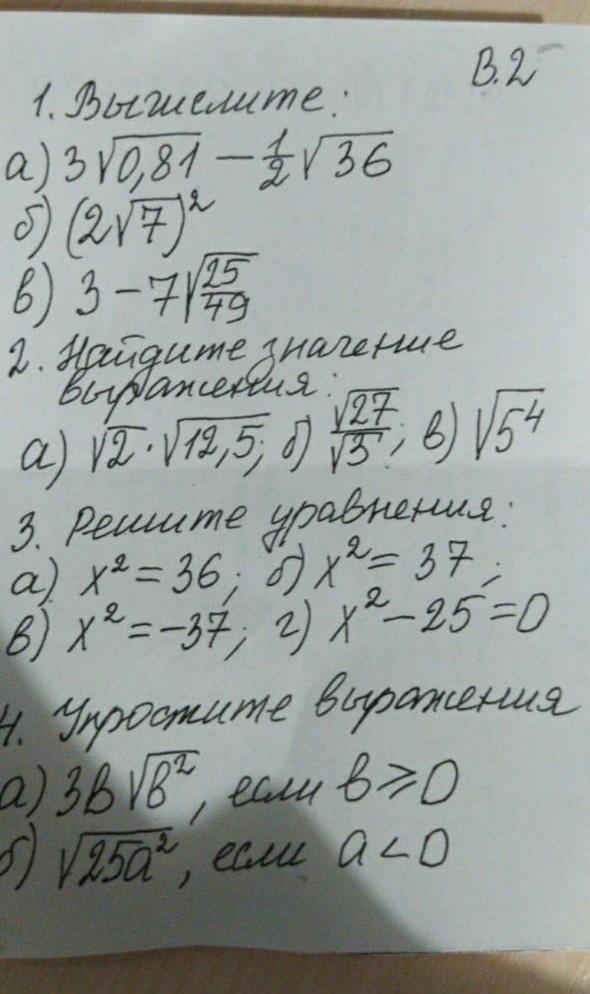 В.2
1. Вычислите:
а) 3√0,81 − 1/2 √36
б) (2√7)²
в) 3 − 7√25/49
2. Найдите значение
выражения:
а) √2 · √12,5; б) √27/√3; в) √5⁴
3. Решите уравнения:
а) x² = 36; б) x² = 37;
в) x² = −37; г) x² − 25 = 0
4. Упростите выражения
а) 3в√в², если в ⩾ 0
б) √25а², если а < 0